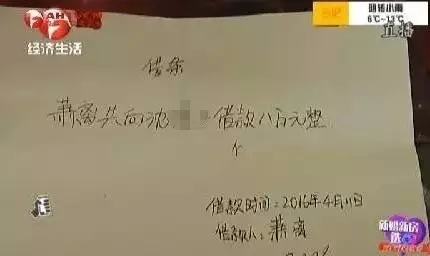 AH
经济生活
阴转小雨
6℃~13℃
直播
借条
萧离共向沈 借款八百元整
个
借款时间：2016年4月11日
借款人：萧离
新婚新房
选